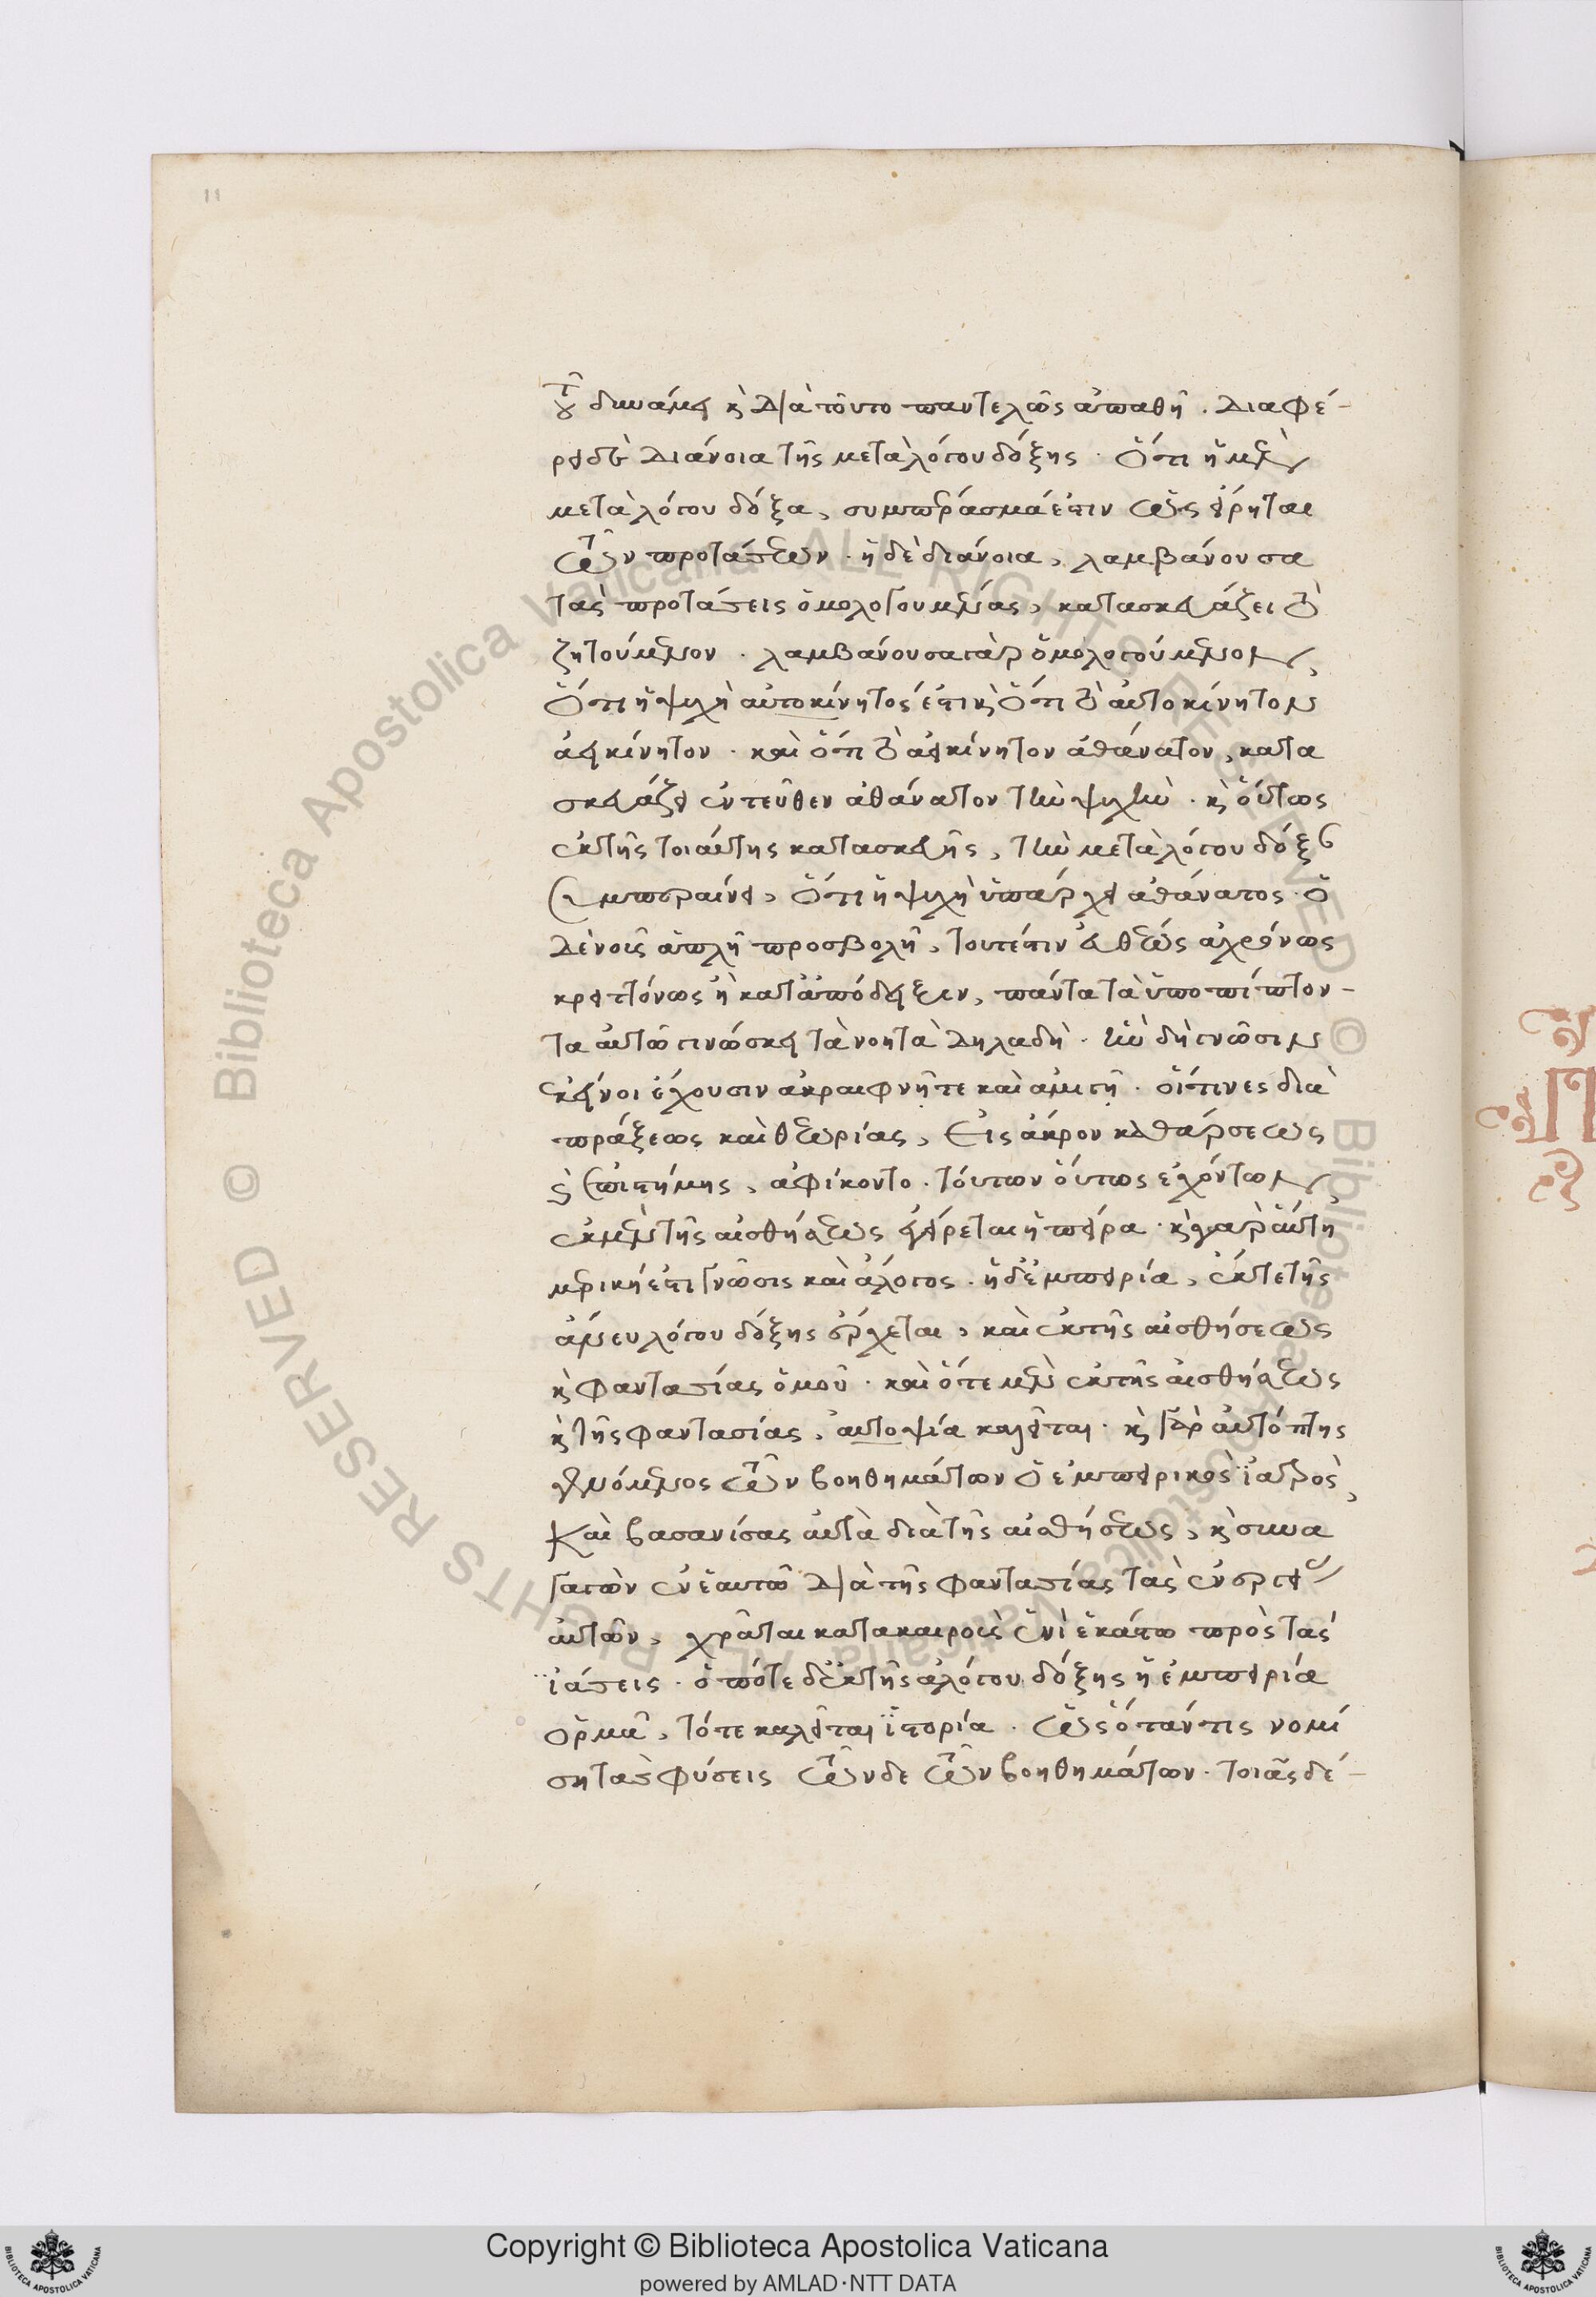 11
τοῦ δυνάμει κ διὰ τοῦτο παντελῶς ἀπαθῆ . διαφέ-
ρει δὲ διάνοια τῆς μετὰ λόγου δόξης · ὅτι ἡ μὲν
μετὰ λόγου δόξα, συμπέρασμά ἐστιν ὡς εἴρηται
τῶν προτάσεων · ἡ δὲ διάνοια, λαμβάνουσα
τὰς προτάσεις ὁμολογουμένας, κατασκευάζει τὸ
ζητούμενον . λαμβάνουσα γὰρ ὁμολογούμενον,
ὅτι ἡ ψυχὴ αὐτοκίνητός ἐστι κ ὅτι τὸ αὐτοκίνητον
ἀεικίνητον · καὶ ὅτι τὸ ἀεικίνητον ἀθάνατον, κατα
σκευάζει ἐντεῦθεν ἀθάνατον τὴν ψυχὴν · κ οὕτως
ἐκ τῆς τοιαύτης κατασκευῆς, τὴν μετὰ λόγου δόξαν
συμπεραίνει, ὅτι ἡ ψυχὴ ὑπάρχει ἀθάνατος · ὁ
δὲ νοῦς ἁπλῆ προσβολῆ, τουτέστιν εὐθέως ἀχρόνως
κρειττόνως ἢ κατ' ἀπόδειξιν, πάντα τὰ ὑποπίπτον-
τα αὐτῶ γινώσκει τὰ νοητὰ δηλαδὴ . ἣν δὴ γνῶσιν
ἐκεῖνοι ἔχουσιν ἀκραιφνῆ τε καὶ ἀμιγῆ . οἵτινες διὰ
πράξεως καὶ θεωρίας, εἰς ἄκρον καθάρσεως
κ ἐπιστήμης, ἀφίκοντο . τούτων οὕτως ἐχόντων,
ἐκ μὲν τῆς αἰσθήσεως εὕρεται ἡ πεῖρα · κ γὰρ αὕτη
μερική ἐστι γνῶσις καὶ ἄλογος . ἡ δ' ἐμπειρία, ἐκ τε τῆς
ἄνευ λόγου δόξης ἄρχεται, καὶ ἐκ τῆς αἰσθήσεως
κ φαντασίας ὁμοῦ . καὶ ὅτε μὲν ἐκ τῆς αἰσθήσεως
κ τῆς φαντασίας, αὐτοψία καλεῖται · κ γὰρ αὐτόπτης
γενόμενος τῶν βοηθημάτων ὁ ἐμπειρικὸς ϊατρὸς,
καὶ βασανίσας αὐτὰ διὰ τῆς αἰσθήσεως, κ συνα
γαγὼν ἐν ἑαυτῶ διὰ τῆς φαντασίας τὰς ἐνεργείας
αὐτῶν, χρᾶται κατὰ καιροὺς ἑνὶ ἑκάστω πρὸς τὰς
ϊάσεις . ὁπότε δ' ἐκ τῆς ἀλόγου δόξης ἡ ἐμπειρία
ὁρμᾶ, τότε καλεῖται ϊστορία . ὡς ὅταν τις νομί
ση τὰς φύσεις τῶνδε τῶν βοηθημάτων . τοιάσδε-
Biblioteca Apostolica Vaticana ALL RIGHTS RESERVED ©
Copyright © Biblioteca Apostolica Vaticana
powered by AMLAD·NTT DATA